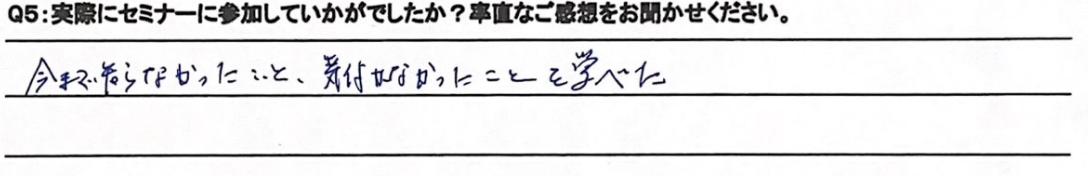 Q5:実際にセミナーに参加していかがでしたか？率直なご感想をお聞かせください。
今まで知らなかったこと、気付かなかったことを学べた